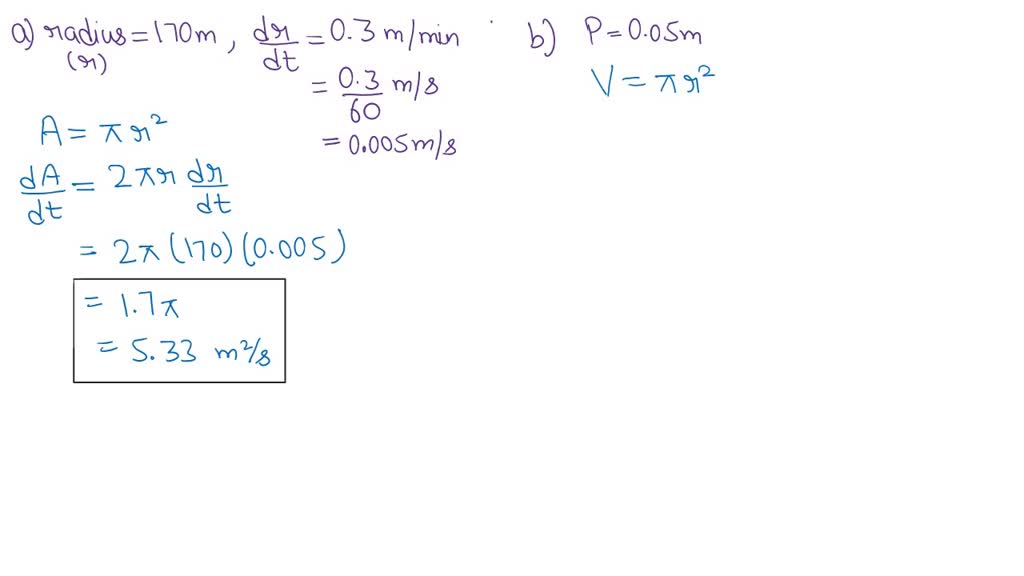 a) radius = 170m , dr/dt = 0.3 m/min
(r)
= 0.3/60 m/s
= 0.005 m/s
A = πr²
dA/dt = 2πr dr/dt
= 2π(170)(0.005)
= 1.7π
= 5.33 m²/s
b) P = 0.05m
V = πr²